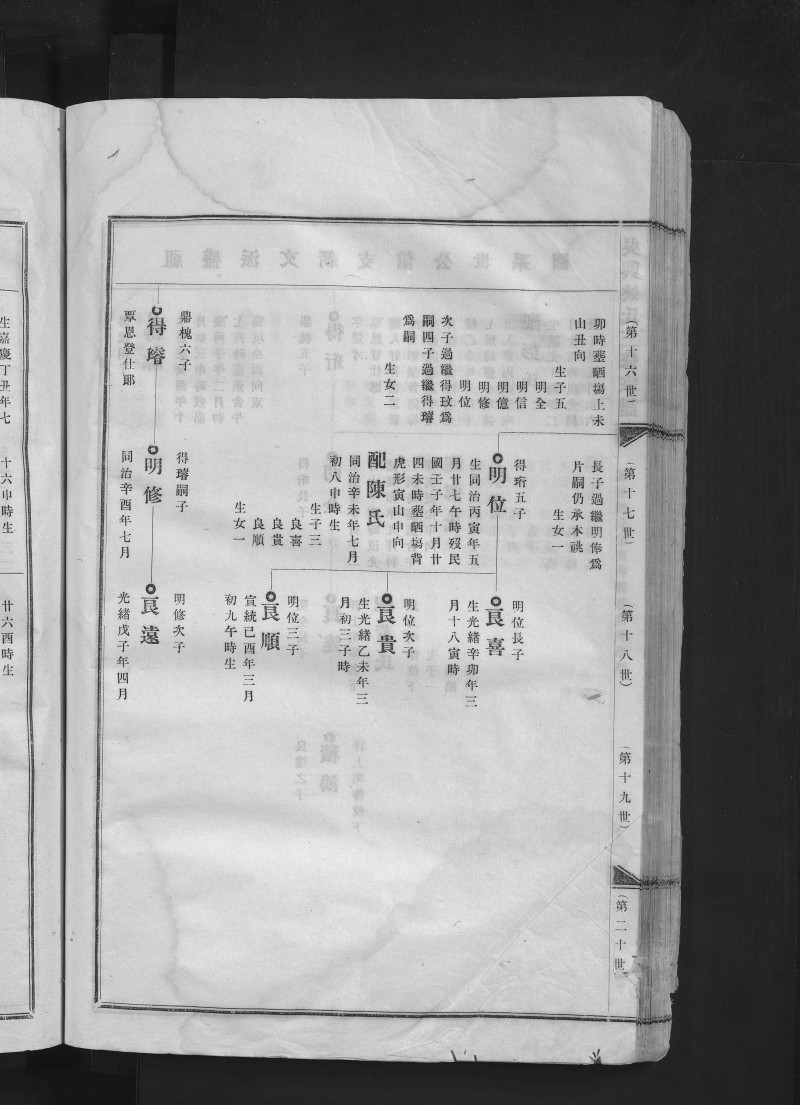 （第十六世）
（第十七世）
（第十八世）
（第十九世）
（第二十世）
卯時塟晒塲上未
山丑向
生子五
明全
明信
明億
明修
明位
次子過繼得玫爲
嗣四子過繼得璿
爲嗣
生女二
鼎槐六子
得璿
覃恩登仕郞
長子過繼明俸爲
片嗣仍承本祧
生女一
得珩五子
明位
生同治丙寅年五
月廿七午時歿民
國壬子年十月廿
四未時塟晒塲背
虎形寅山申向
配陳氏
同治辛未年七月
初八申時生
生子三
良喜
良貴
良順
生女一
得璿嗣子
明修
同治辛酉年七月
明位長子
良喜
生光緒辛卯年三
月十八寅時
明位次子
良貴
生光緒乙未年三
月初三子時
明位三子
良順
宣統己酉年三月
初九午時生
明修次子
良遠
光緒戊子年四月
生嘉慶丁丑年七
十六申時生
廿六酉時生